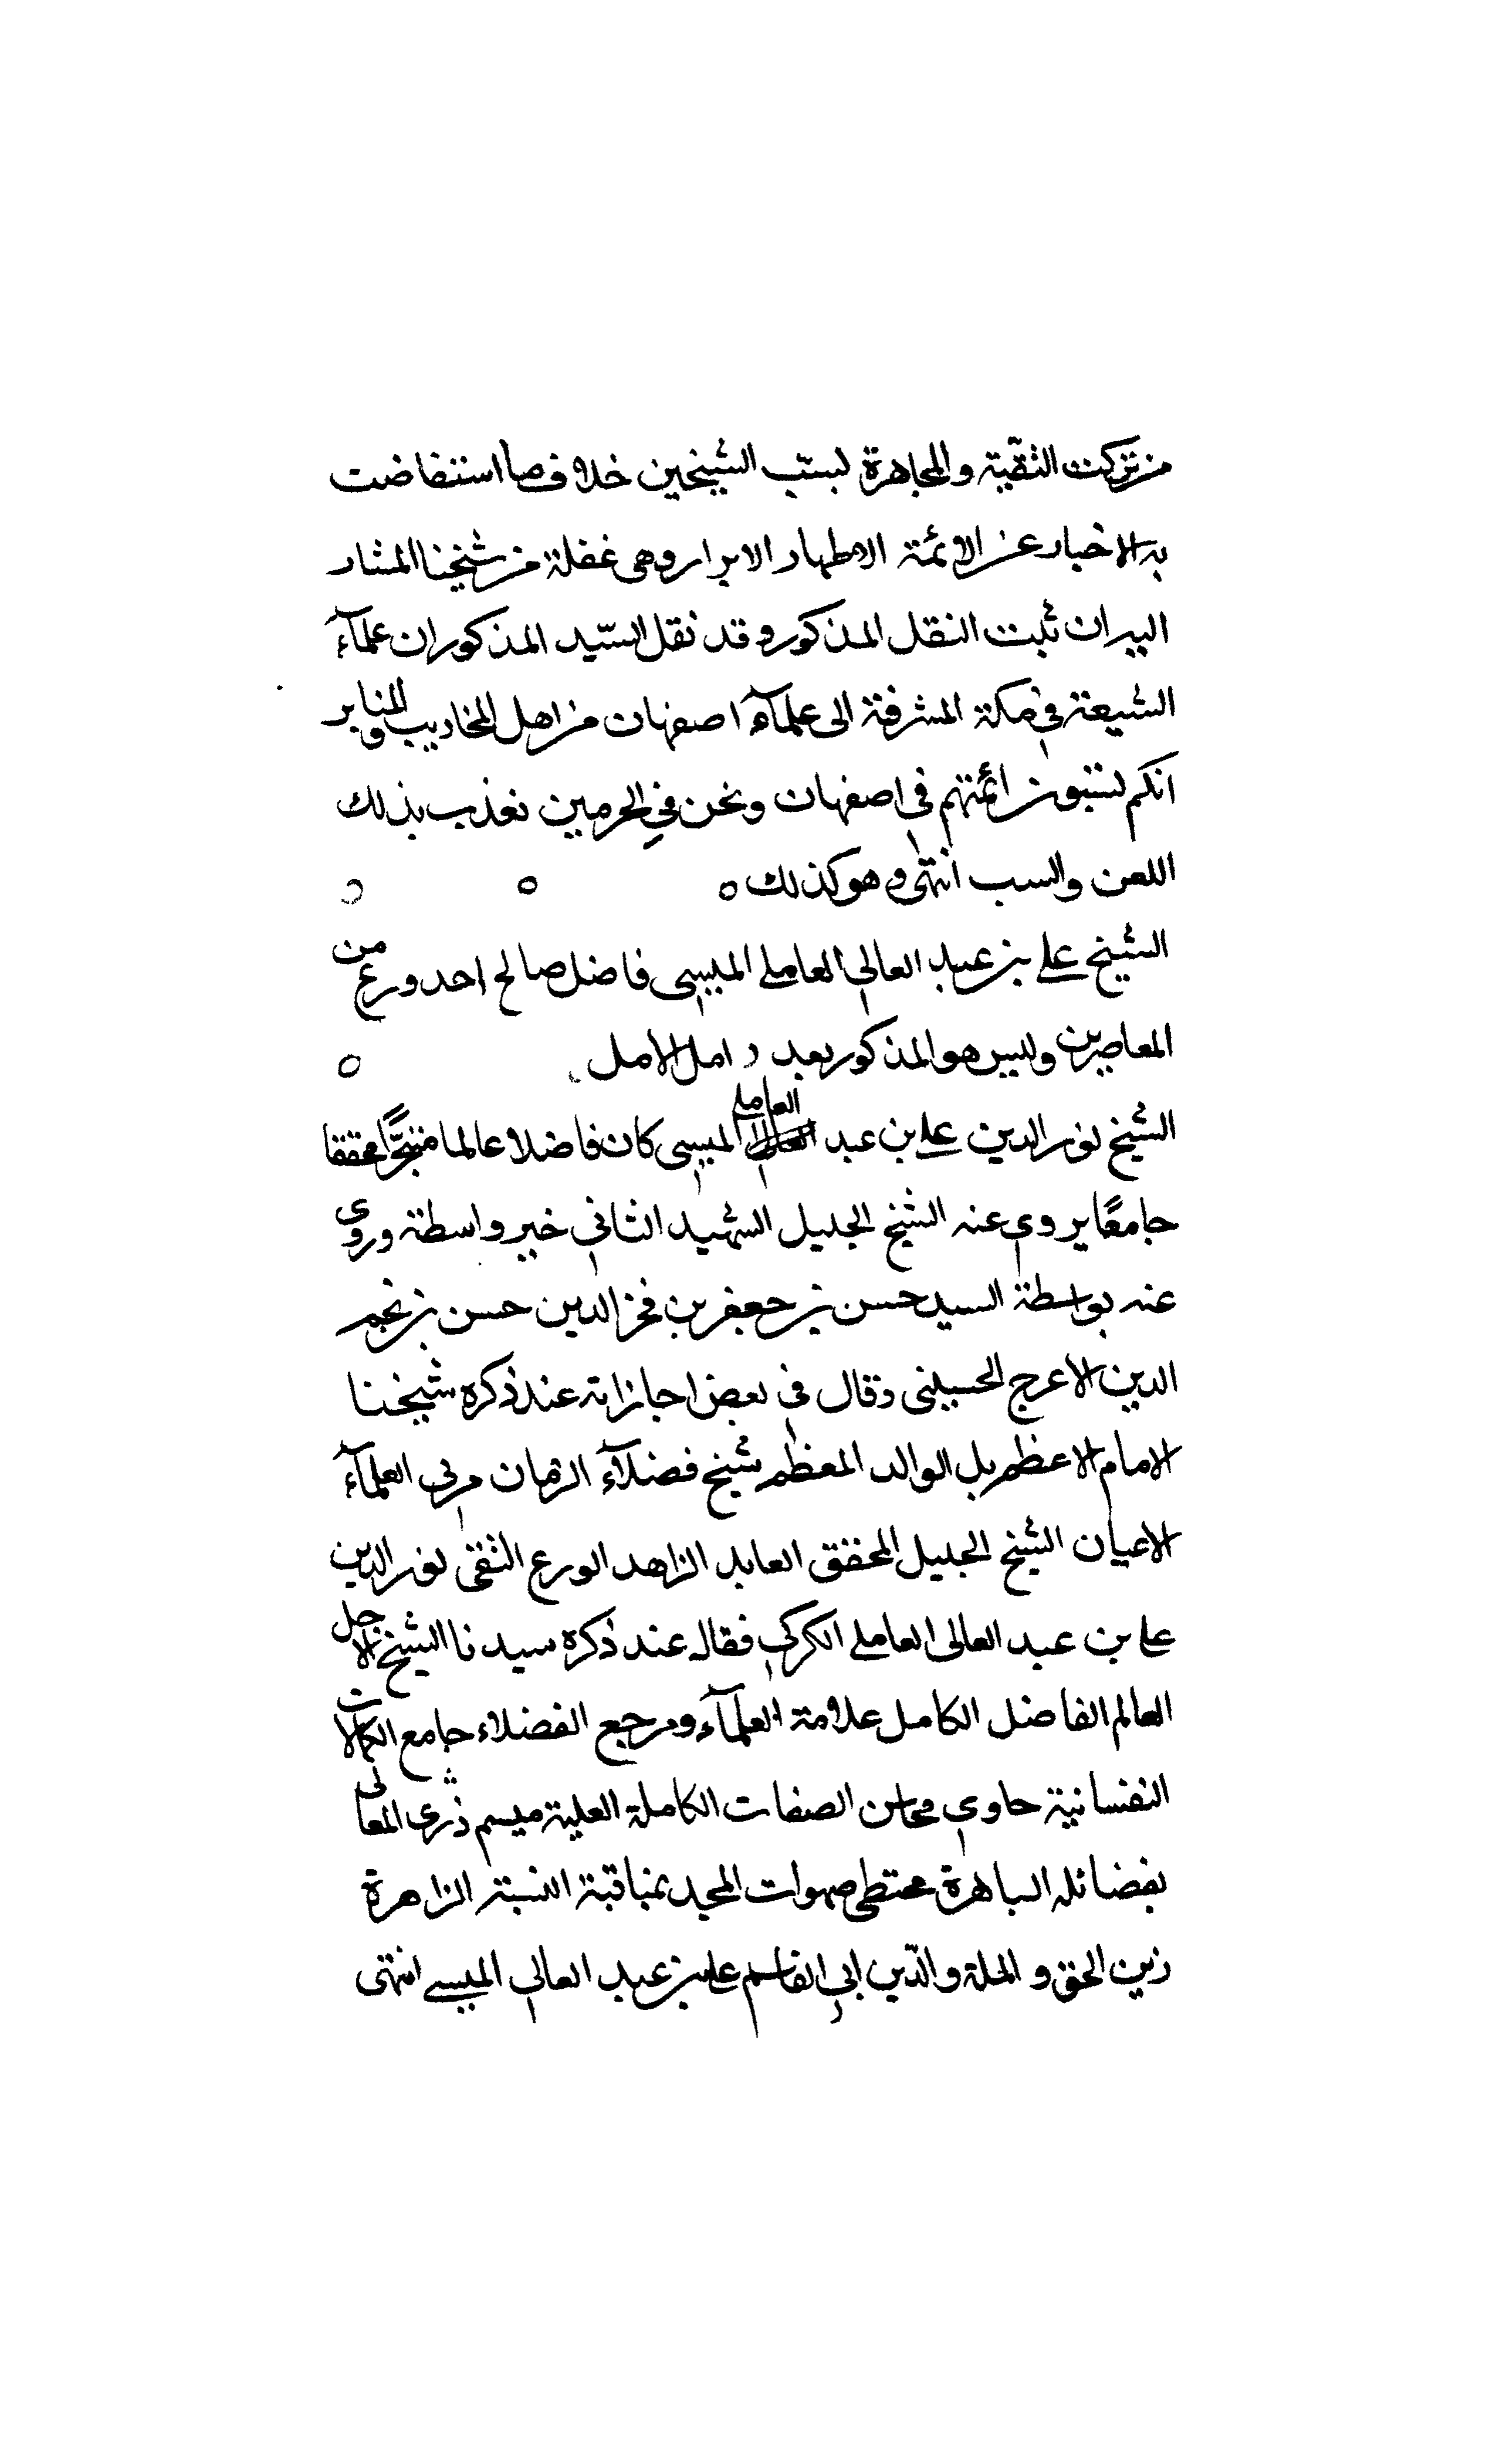 من ترك التقيّة والمجاهرة لبسبّ الشيخين خلاف ما استفاضت
به الاخبار عن الائمة الاطهار الابرار وهى غفلة من شيخنا المشار
اليه ان ثبت النقل المذكور وقد نقل السيّد المذكور ان علمآء
الشيعة في مكة المشرفة الى علمآء اصفهان من اهل المحاريب والمنابر
انكم تسبون ائمتهم في اصفهان ونحن في الحرمين نعذب بذلك
اللعن والسب انتهى وهو كذلك ه ه
الشيخ علي بن عبد العالي العاملي الميسي فاضل صالح احد ورع من
المعاصرين وليس هو المذكور بعد امل الامل ه
الشيخ نور الدين علي بن عبد العالي العاملي الميسي كان فاضلا عالما متبحرًا محققا
جامعًا يروي عنه الشيخ الجليل الشهيد الثاني خير واسطة وروى
عنه بواسطة السيد حسن بن جعفر بن فخر الدين حسن بن نجم
الدين الاعرج الحسيني وقال في بعض اجازاته عند ذكره شيخنا
الامام الاعظم بل الوالد المعظم شيخ فضلآء الزمان مربي العلمآء
الاعيان الشيخ الجليل المحقق العابد الزاهد الورع التقى نور الدين
علي بن عبد العالى العاملي الكركي فقال عند ذكره سيدنا الشيخ الاجل
العالم الفاضل الكامل علامة العلمآء ومرجع الفضلاء جامع الكمالات
النفسانية حاوي محاسن الصفات الكاملة العلية ميسم ذرى المعالى
بفضائله الباهرة ممتطى صهوات المجد بمناقبة السنية الزاهرة
زين الحق و الملة والدّين ابي القاسم علي بن عبد العالي الميسي انتهى